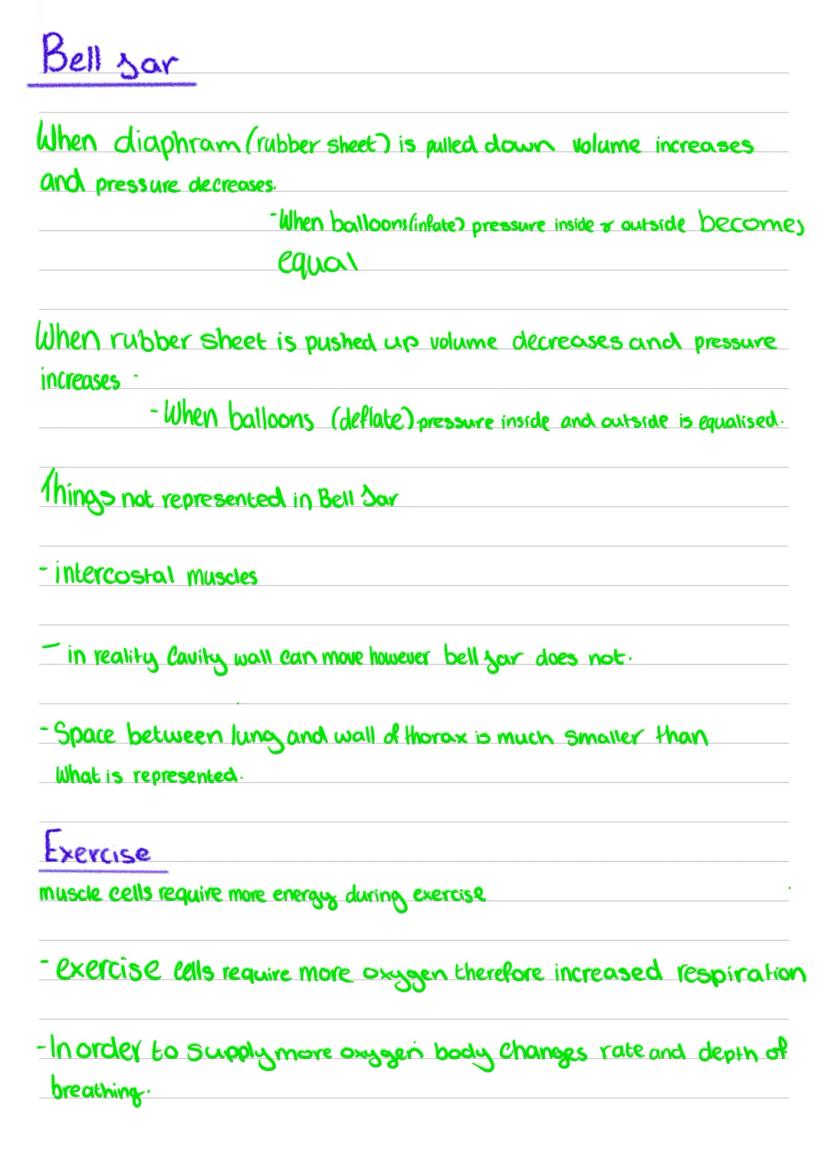 Bell Jar
When diaphram (rubber sheet) is pulled down volume increases
and pressure decreases.
- When balloons (inflate) pressure inside & outside becomes
equal
When rubber sheet is pushed up volume decreases and pressure
increases.
- When balloons (deflate) pressure inside and outside is equalised.
Things not represented in Bell Jar
- intercostal muscles
- in reality Cavity wall can move however bell jar does not.
- Space between lung and wall of thorax is much smaller than
what is represented.
Exercise
muscle cells require more energy during exercise
- exercise cells require more oxygen therefore increased respiration
- In order to supply more oxygen body changes rate and depth of
breathing.